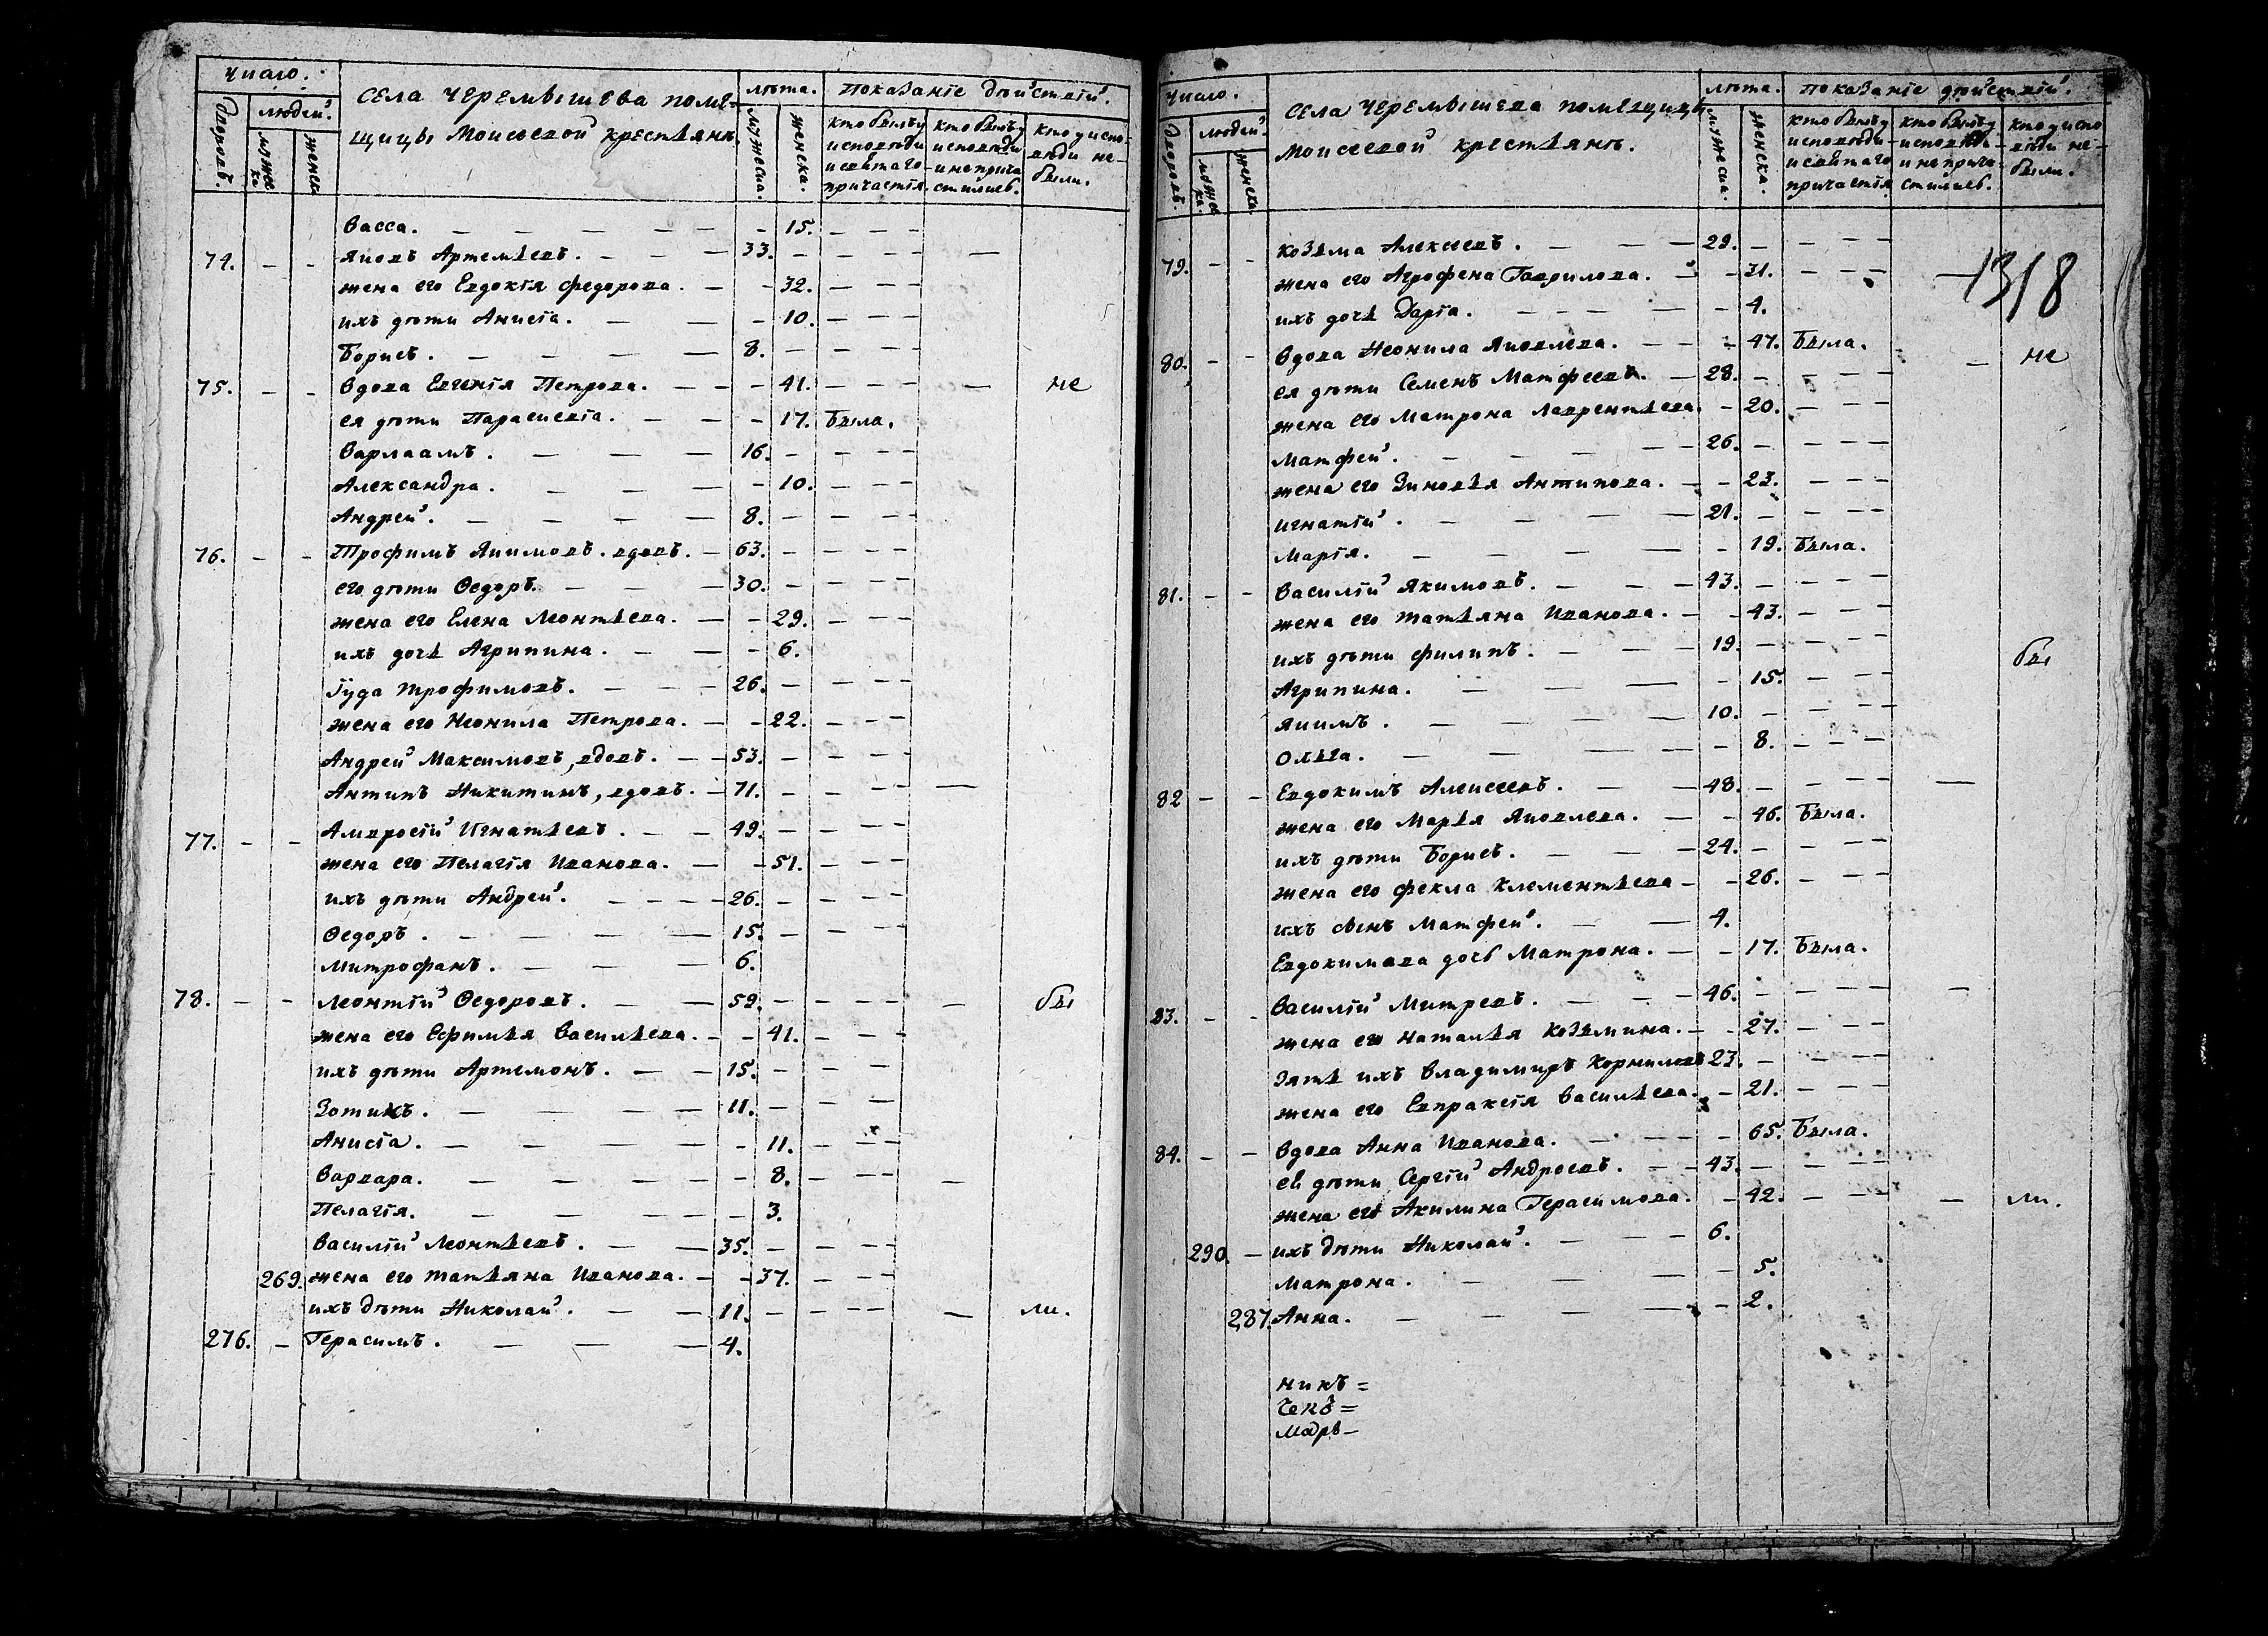 число.
села черемышева поме-
щицы Моисеевой крестьянъ.
лѣта.
показаніе дѣйствій.
дворовъ.
людей.
мужеска.
женска
мужеска.
женска.
кто былъ у исповѣди и святаго причастія
кто былъ у исповѣди и не причастились.
кто у исповѣди не были.
Васса. — 15. — — —
74. — — Яковъ Артемьевъ. — 33. — — — —
жена его Евдокія Федорова. — 32. — — —
ихъ дѣти Анисіа. — 10. — — —
Борисъ. — 8. — — — —
75. — — Вдова Евгенія Петрова. — 41. — — — — не
ея дѣти Параскевіа. — 17. Была.
Варлаамъ. — 16. — — — —
Александра. — 10. — — —
Андрей. — 8. — — — —
76. — — Трофимъ Якимовъ. вдовъ. — 63. — — — —
его дѣти Ѳедоръ. — 30. — — — —
жена его Елена Леонтьева. — 29. — — —
ихъ дочь Агрипина. — 6.
Іуда Трофимовъ. — 26. — — — —
жена его Неонила Петрова. — 22. — — —
Андрей Максимовъ, вдовъ. — 53. — — — —
Антипъ Никитинъ, вдовъ. — 71. — — — — —
77. — — Амвросій Игнатьевъ. — 49. — — — —
жена его Пелагія Иванова. — 51. — — —
ихъ дѣти Андрей. — 26. — — — —
Ѳедоръ. — 15. — — — —
Митрофанъ. — 6.
78. — — Леонтій Ѳедоровъ. — 59. — — — — — бы
жена его Ефимья Васильева. — 41. — — —
ихъ дѣти Артемонъ. — 15. — — —
Зотикъ. — 11. — — — —
Анисіа. — 11. — — —
Варвара. — 8. — — — —
Пелагія. — 3.
Василій Леонтьевъ. — 35. — — — —
269. жена его Татьяна Иванова. — 37. — — —
ихъ дѣти Николай. — 11. — — — — — ли.
276. — Герасимъ. — 4.
число.
села черемышева помещицы
Моисеевой крестьянъ.
лѣта.
показаніе дѣйствій.
дворовъ.
людей.
мужеска.
женска.
мужеска.
женска.
кто былъ у исповѣди и святаго причастія
кто былъ у исповѣди и не причастились.
кто у исповѣди не были.
1318
79. — — Козьма Алексеевъ. — 29. — — — —
жена его Агрофена Гаврилова. — 31. — — — —
ихъ дочь Дарія. — 4.
80. — — Вдова Неонила Яковлева. — 47. Была. — не
ея дѣти Семенъ Матфеевъ. — 28. — — — —
жена его Матрона Лаврентьева. — 20. — — —
Матфей. — 26. — — — —
жена его Зиновья Антипова. — 23. — — —
Игнатій. — 21. — — — —
Марія. — 19. Была.
81. — — Василий Якимовъ. — 43. — — — —
жена его Татьяна Иванова. — 43. — — —
ихъ дѣти Филипъ. — 19. — — — — бы
Агрипина. — 15. — — —
Якимъ. — 10. — — — —
Ольга. — 8. — — —
82 — — Евдокимъ Алексеевъ. — 48. — — — — —
жена его Марья Яковлева. — 46. Была.
ихъ дѣти Борисъ. — 24. — — — —
жена его Фекла Клементьева — 26. — — —
ихъ сынъ Матфей. — 4.
Евдокимова дочь Матрона. — 17. Была.
83. — — Василій Митревъ. — 46. — — — — —
жена его Наталья Козьмина. — 27. — — —
Зять ихъ Владимиръ Корниловъ 23. — — — —
жена его Евпраксія Васильева. — 21. — — —
84. — — Вдова Анна Иванова. — 65. Была.
ев дѣти Сергій Андреевъ. — 43. — — — —
жена его Акилина Герасимова. — 42. — — — — ли.
290. — ихъ дѣти Николай. — 6.
Матрона. — 5.
287. Анна. — 2.